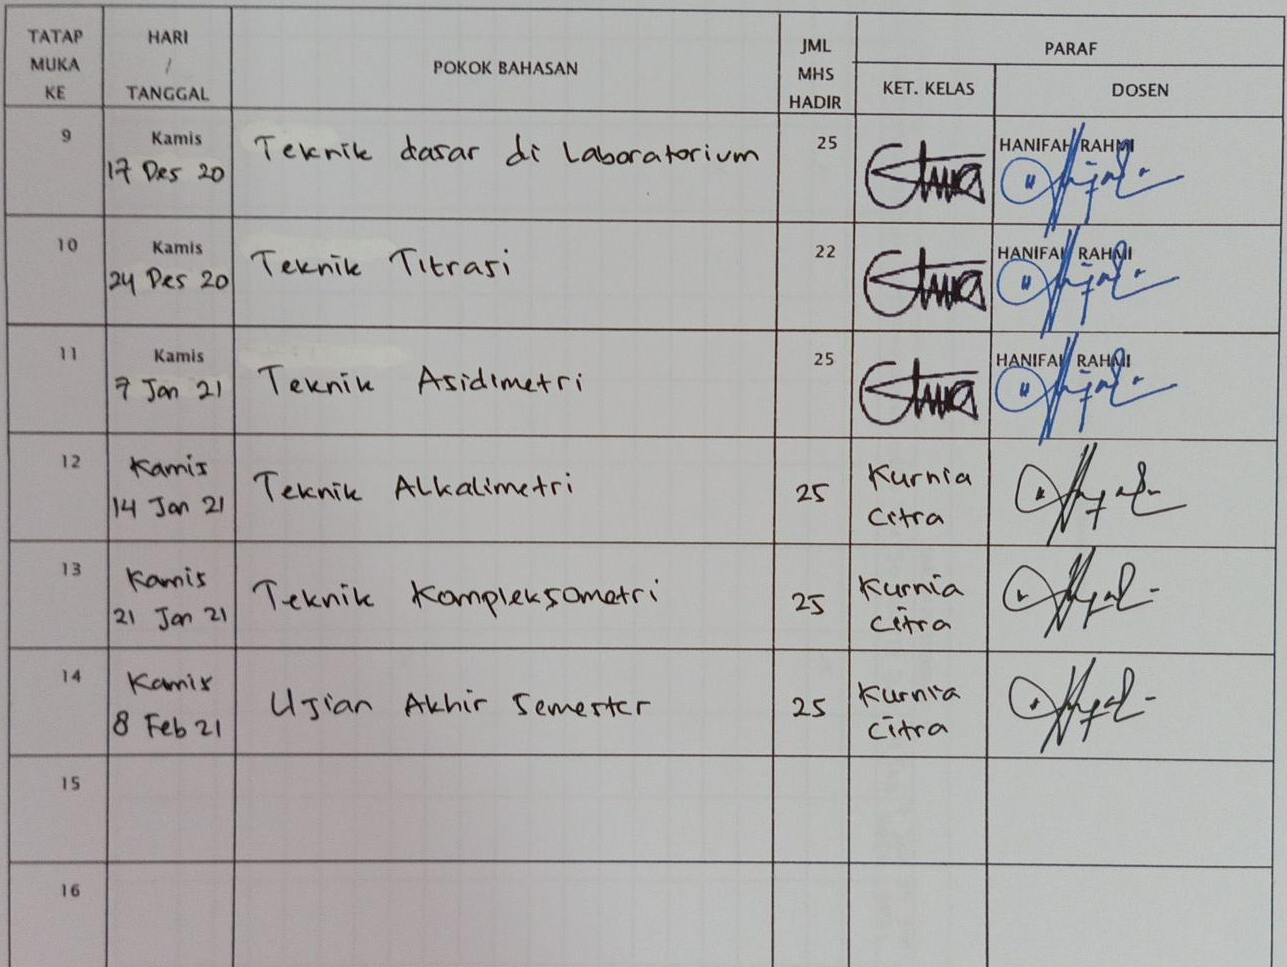 TATAP MUKA KE
HARI / TANGGAL
POKOK BAHASAN
JML MHS HADIR
PARAF
KET. KELAS
DOSEN
9
Kamis
17 Des 20
Teknik dasar di Laboratorium
25
HANIFAH RAHMI
10
Kamis
24 Des 20
Teknik Titrasi
22
HANIFAH RAHMI
11
Kamis
7 Jan 21
Teknik Asidimetri
25
HANIFAH RAHMI
12
Kamis
14 Jan 21
Teknik Alkalimetri
25
Kurnia
Citra
13
Kamis
21 Jan 21
Teknik Kompleksometri
25
Kurnia
Citra
14
Kamis
8 Feb 21
Ujian Akhir Semester
25
Kurnia
Citra
15
16